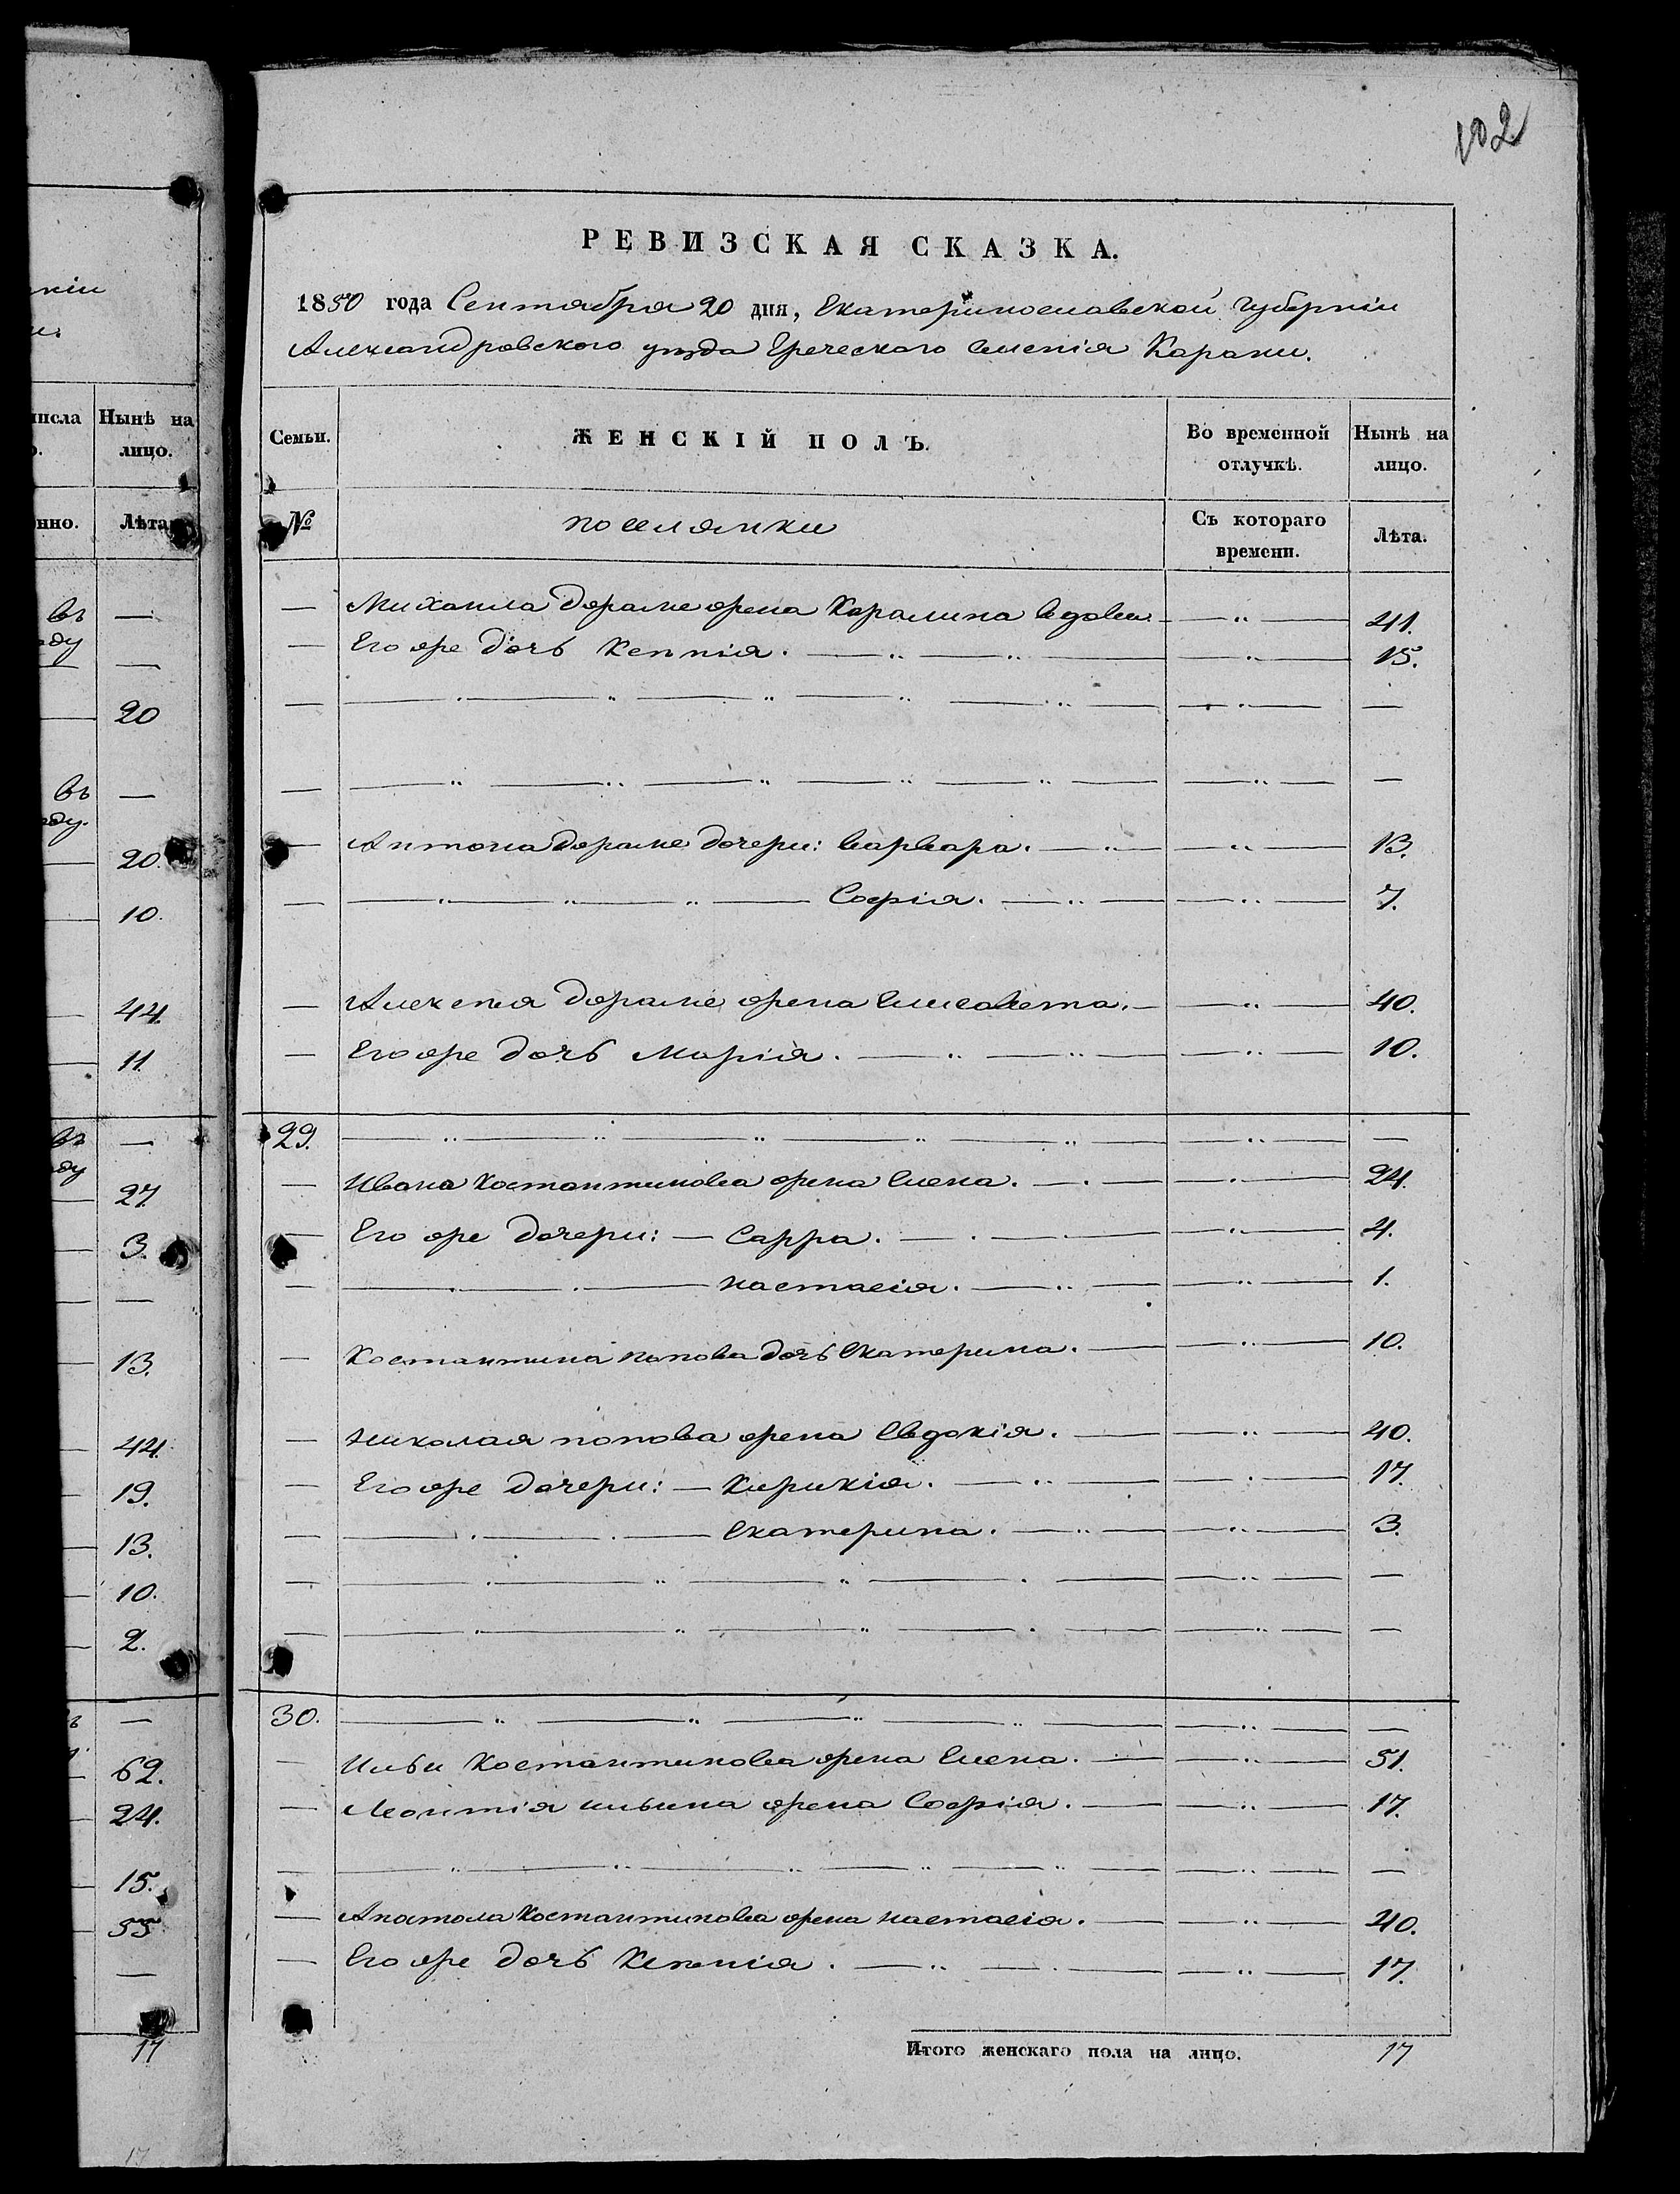 102
кіи
и.
числа
Нынѣ на
о.
лицо.
нно.
Лѣта.
въ —
оду
—
20
въ —
оду.
20.
10.
44.
11.
въ —
оду
27.
3.
—
13.
44.
19.
13.
10.
2.
—
62.
24.
15.
55.
—
17
17
РЕВИЗСКАЯ СКАЗКА.
1850 года Сентября 20 дня, Екатеринославской Губерніи
Александровскаго уѣзда Греческаго селенія Карани.
Семьи.
ЖЕНСКІЙ ПОЛЪ.
Во временной отлучкѣ.
Нынѣ на лицо.
№
поселянки
Съ котораго времени.
Лѣта.
— Михаила жена Каралина вдова — „ — 41.
— Его же дочь Кеппія. — „ — „ — „ — 15.
— „ — „ — „ — „ — „ — „ — —
— „ — „ — „ — „ — „ — „ — —
— Антона дочери: Варвара. — „ — „ — 13.
— „ — „ — „ — Софія. — „ — „ — 7.
— Алексѣя жена Елисавета. — „ — 40.
— Его же дочь Марія. — „ — „ — „ — 10.
29. — „ — „ — „ — „ — „ — „ — —
— Ивана Костантинова жена Елена. — „ — „ — 24.
— Его же дочери: — Сарра. — . — . — „ — 4.
— . — . — Настасія. — „ — „ — 1.
— Костантина Попова дочь Екатерина. — „ — 10.
— Николая Попова жена Евдокія. — „ — 40.
— Его же дочери: — Кирикія. — „ — . — 17.
— . — . — Екатерина. — „ — „ — 3.
— . — „ — „ — . — „ — —
— „ — „ — „ — . — „ — —
30. — „ — „ — „ — „ — „ — —
— Ильи Костантинова жена Елена. — „ — 51.
— Леонтія Ильина жена Софія. — „ — 17.
— „ — „ — „ — „ — „ — „ — —
— Апостола Костантинова жена Настасія. — „ — 40.
— Его же дочь Кепппія. — „ — . — „ — 17.
Итого женскаго пола на лицо. 17